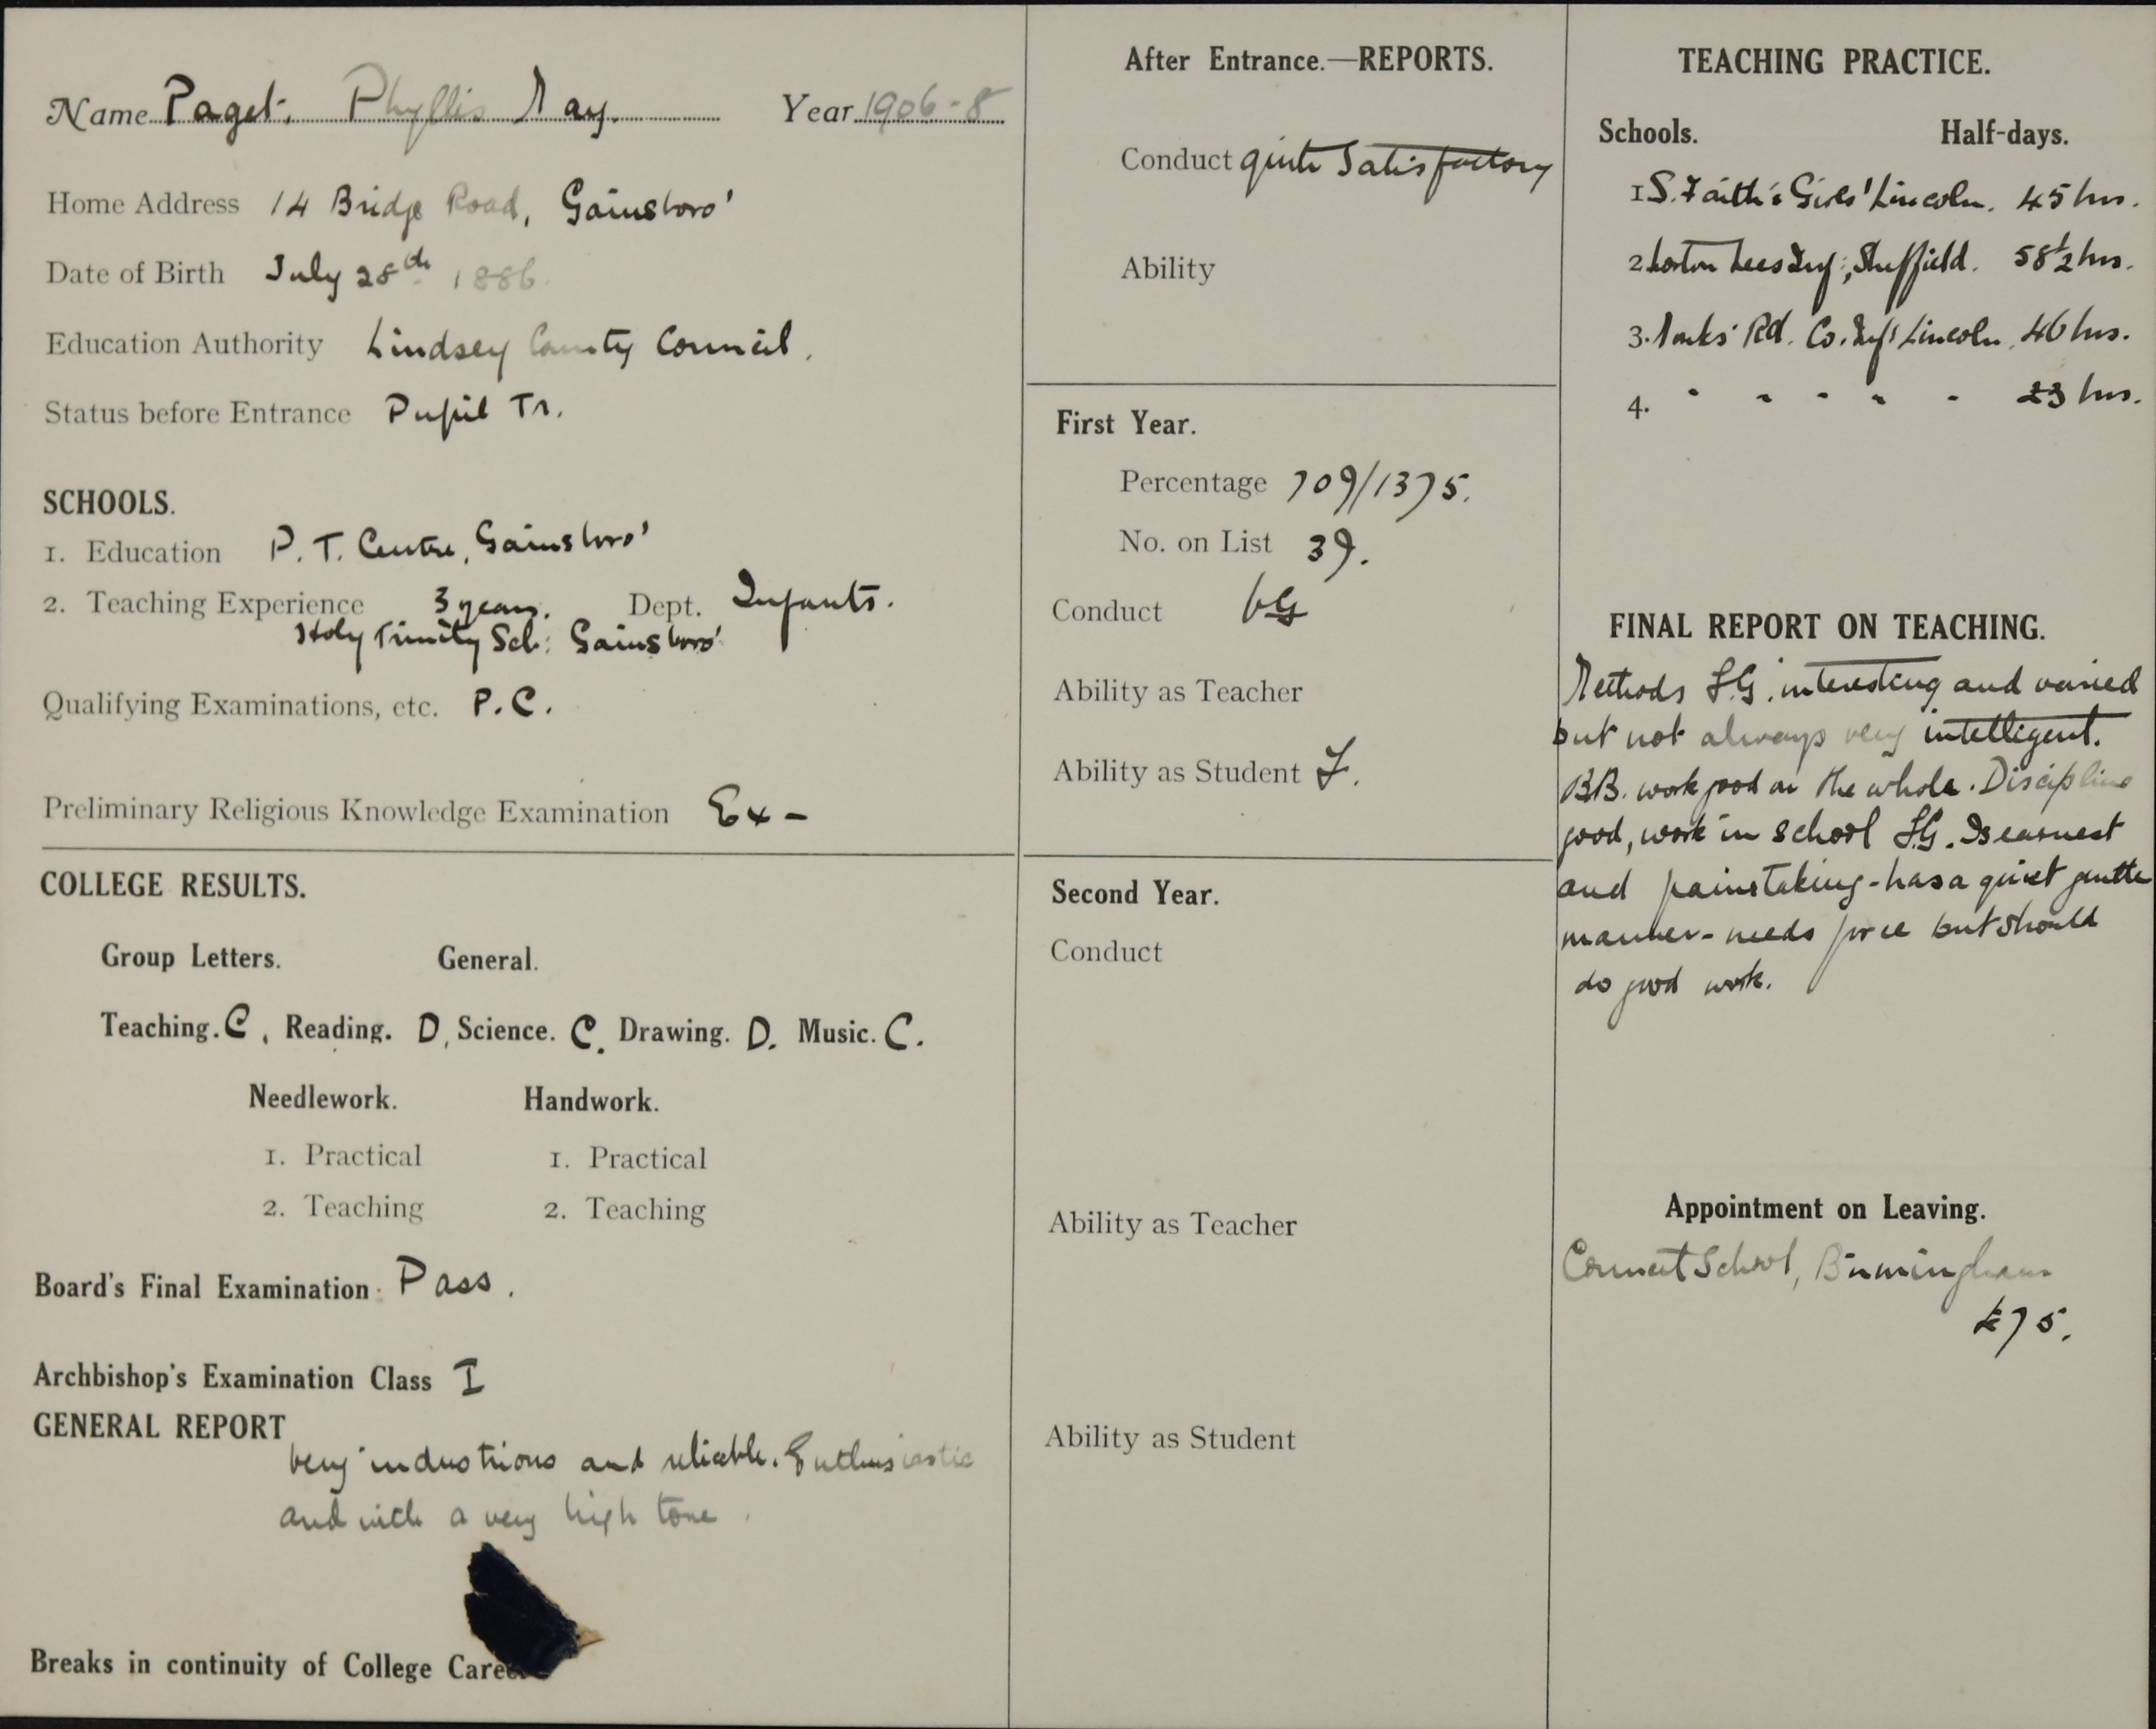 Name Paget. Phyllis May. Year 1906-8
Home Address 14 Bridge Road, Gainsboro'
Date of Birth July 28th 1886.
Education Authority Lindsey County Council.
Status before Entrance Pupil Tr.
SCHOOLS.
1. Education P. T. Centre, Gainsboro'
2. Teaching Experience 3 years. Dept. Infants.
Holy Trinity Sch: Gainsboro'
Qualifying Examinations, etc. P.C.
Preliminary Religious Knowledge Examination Ex -
COLLEGE RESULTS.
Group Letters. General.
Teaching. C, Reading. D, Science. C. Drawing. D. Music. C.
Needlework. Handwork.
1. Practical 1. Practical
2. Teaching 2. Teaching
Board's Final Examination. Pass.
Archbishop's Examination Class I
GENERAL REPORT
Very industrious and reliable. Enthusiastic
and with a very high tone.
Breaks in continuity of College
After Entrance.—REPORTS.
Conduct quite Satisfactory
Ability
First Year.
Percentage 709/1375.
No. on List 39.
Conduct VG
Ability as Teacher
Ability as Student F.
Second Year.
Conduct
Ability as Teacher
Ability as Student
TEACHING PRACTICE.
Schools. Half-days.
1 S. Faith's Girls' Lincoln. 45 hrs.
2 Norton Lees Inf:, Sheffield. 58½ hrs.
3. Monks' Rd. Co. Inf: Lincoln. 46 hrs.
4. " " " " " 23 hrs.
FINAL REPORT ON TEACHING.
Methods F.G. interesting and varied
but not always very intelligent.
BB. work good on the whole. Discipline
good, work in school F.G. Is earnest
and painstaking - has a quiet gentle
manner - needs force but should
do good work.
Appointment on Leaving.
Council School, Birmingham
£75.